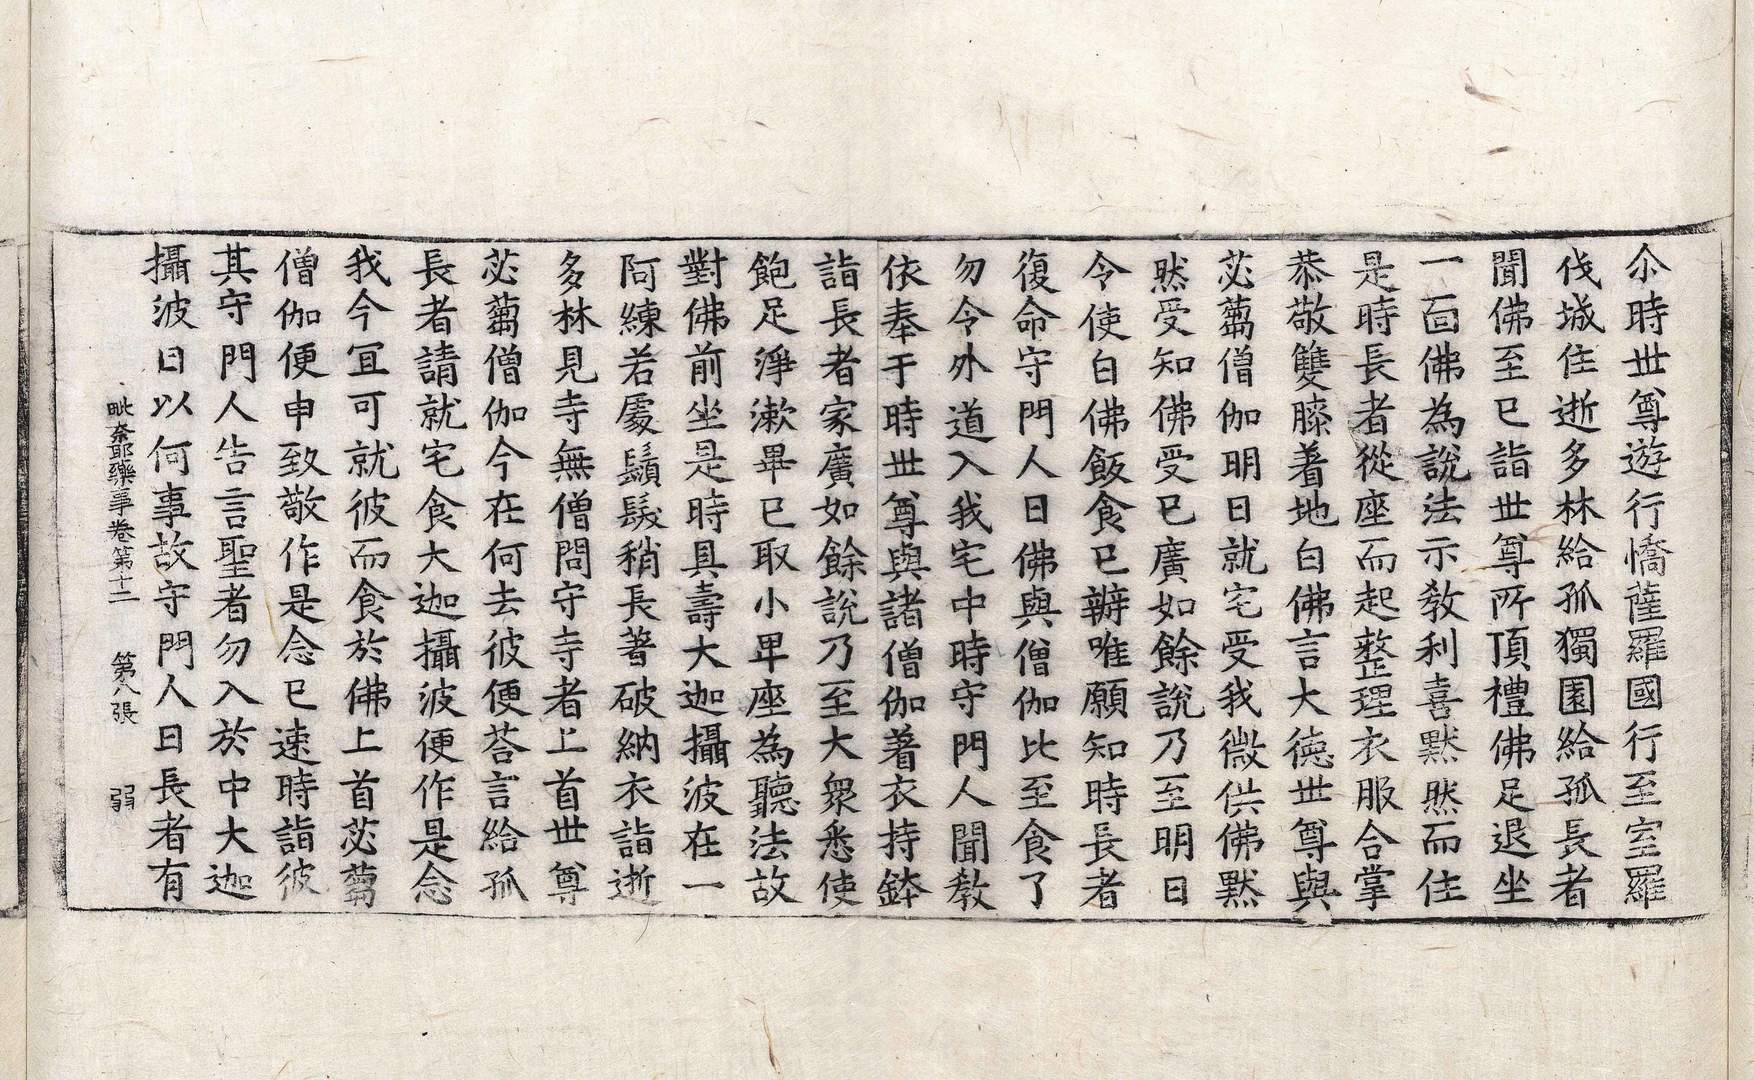 尒時世尊遊行憍薩羅國行至室羅
伐城住逝多林給孤獨園給孤長者
聞佛至已詣世尊所頂禮佛足退坐
一面佛為說法示教利喜默然而住
是時長者從座而起整理衣服合掌
恭敬雙膝著地白佛言大德世尊與
苾蒭僧伽明日就宅受我微供佛默
然受知佛受已廣如餘說乃至明日
令使白佛飯食已辦唯願知時長者
復命守門人曰佛與僧伽比至食了
勿令外道入我宅中時守門人聞教
依奉于時世尊與諸僧伽著衣持鉢
詣長者家廣如餘說乃至大衆悉使
飽足淨漱畢已取小卑座為聽法故
對佛前坐是時具壽大迦攝波在一
阿練若處鬚髮稍長著破納衣詣逝
多林見寺無僧問守寺者上首世尊
苾蒭僧伽今在何去彼便荅言給孤
長者請就宅食大迦攝波便作是念
我今冝可就彼而食於佛上首苾蒭
僧伽便申致敬作是念已速時詣彼
其守門人告言聖者勿入於中大迦
攝波曰以何事故守門人曰長者有
毗奈耶藥事卷第十二 第八張 弱